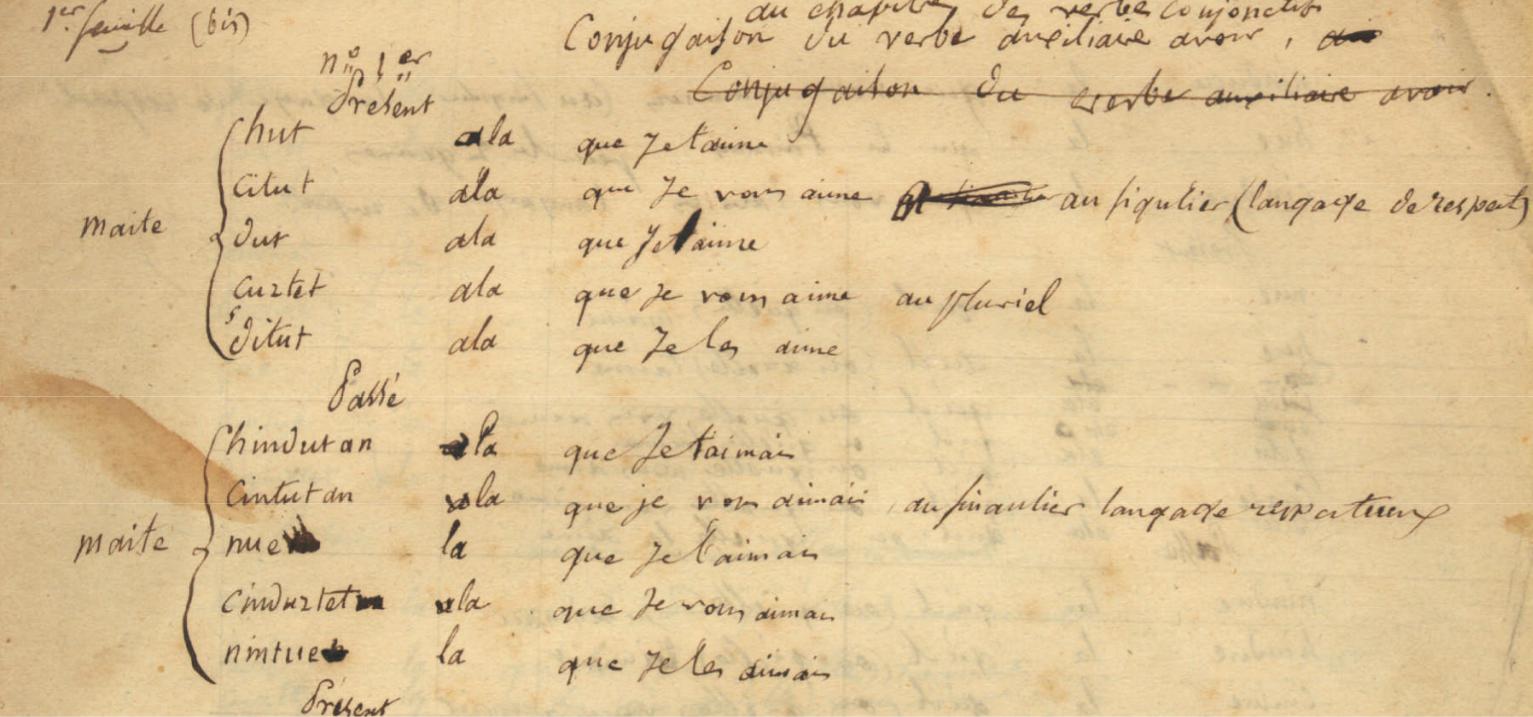 1er feuille (bis)
du chapitre des verbes conjonctifs
Conjugaison du verbe auxiliaire avoir,
n° 1er
Présent
Conjugaison du verbe auxiliaire avoir.
hut ala que Je t'aime
citut ala que Je vous aime au sigulier (langage de respect)
maite
dut ala que Je l'aime
cuztet ala que Je vous aime au pluriel
ditut ala que Je les aime
Passé
hindutan ala que Je t'aimais
cintutan ala que je vous aimais, au singulier langage respectueux
maite
nue la que Je l'aimais
cinduztet ala que Je vous aimais
nintue la que Je les aimais
Présent